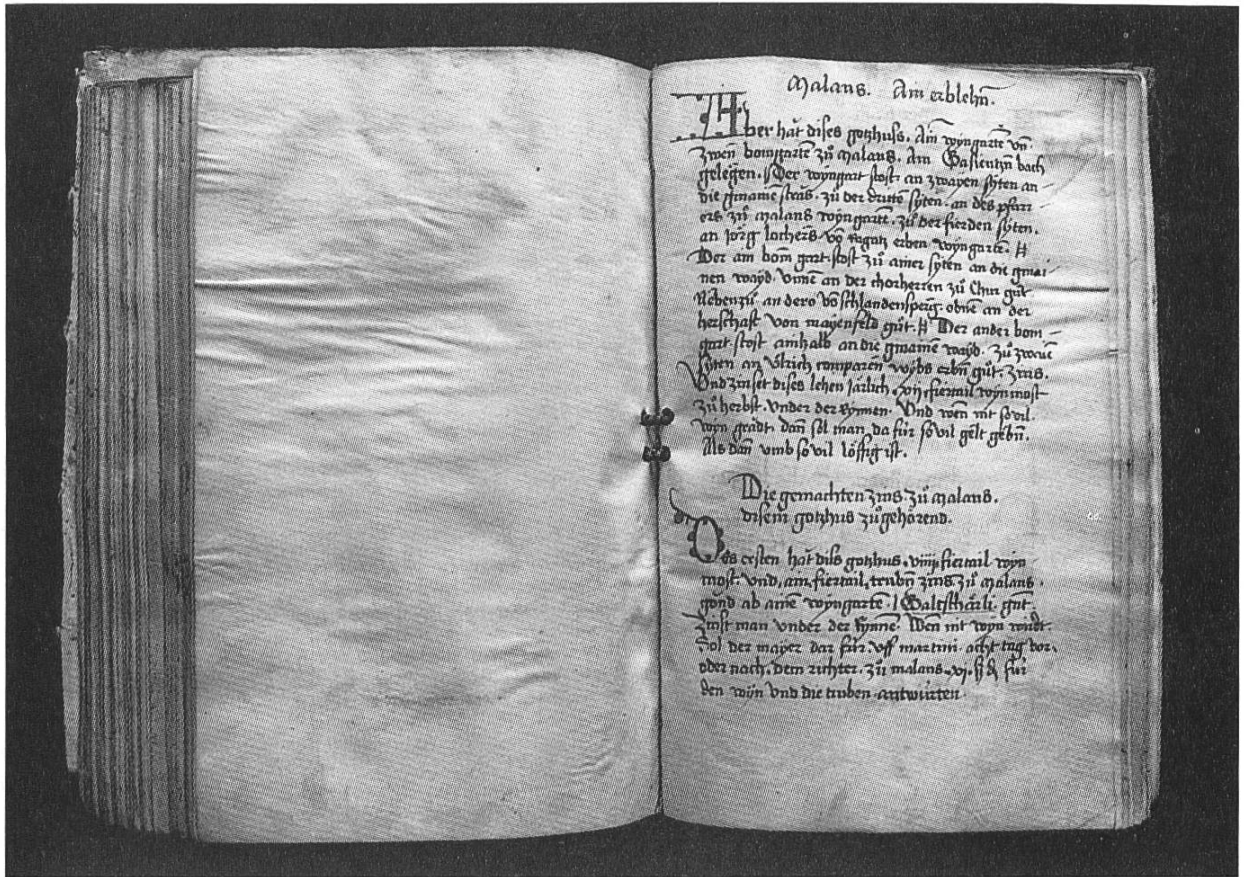 Malans. Ain erblehn̄.
Aber hăt dises gotzhuss. Ain wyngartē vn̄
zwen bomgartē zů Malans. Am bach
gelegen. Der wyngart stost an zwayen syten an
die gmainē sträs. zů der drittē syten. an des pfarr
ers zů Malans wyngartē. zů der fierden syten.
an Jörg lochers vō ragatz erben wyngartē. //
Der ain bom gart. stost zů ainer syten an die gmai
nen wayd. vnnē an der chorherren zů Chur gůt
Nebenzů an dero vō schlandensperg. obnē an der
herschaft von mayenfeld gůt. // Der ander bom
gart. stost ainhalb an die gmainē wayd. zů zwaiē
syten an Vlrich comparen̄ wybs erbn̄ gůt. zins.
Vnd zinset dises lehen Järlich. fiertail wyn most
zů herbst. vnder der rynnen. Vnd wen̄ nit so vil.
wyn. dan̄ sol man da für so vil gelt gebn̄.
Als dan̄ vmb so vil löffig ist.
Die gemachten zins zů Malans.
disem gotzhus zů gehörend.
Des ersten hăt diss gotzhus. viiij. fiertail wyn
most. vnd. ain. fiertail. trubn̄ zins zů Malans.
gond ab ainē wyngartē. gnt.
Zinst man vnder der rynnē. Wen̄ nit wyn wirdt.
Sol der mayer dar für. vff martini. acht tag vor.
oder nach. dem richter. zů malans. vj. ß ₰ für
den wyn vnd die truben. antwürten.